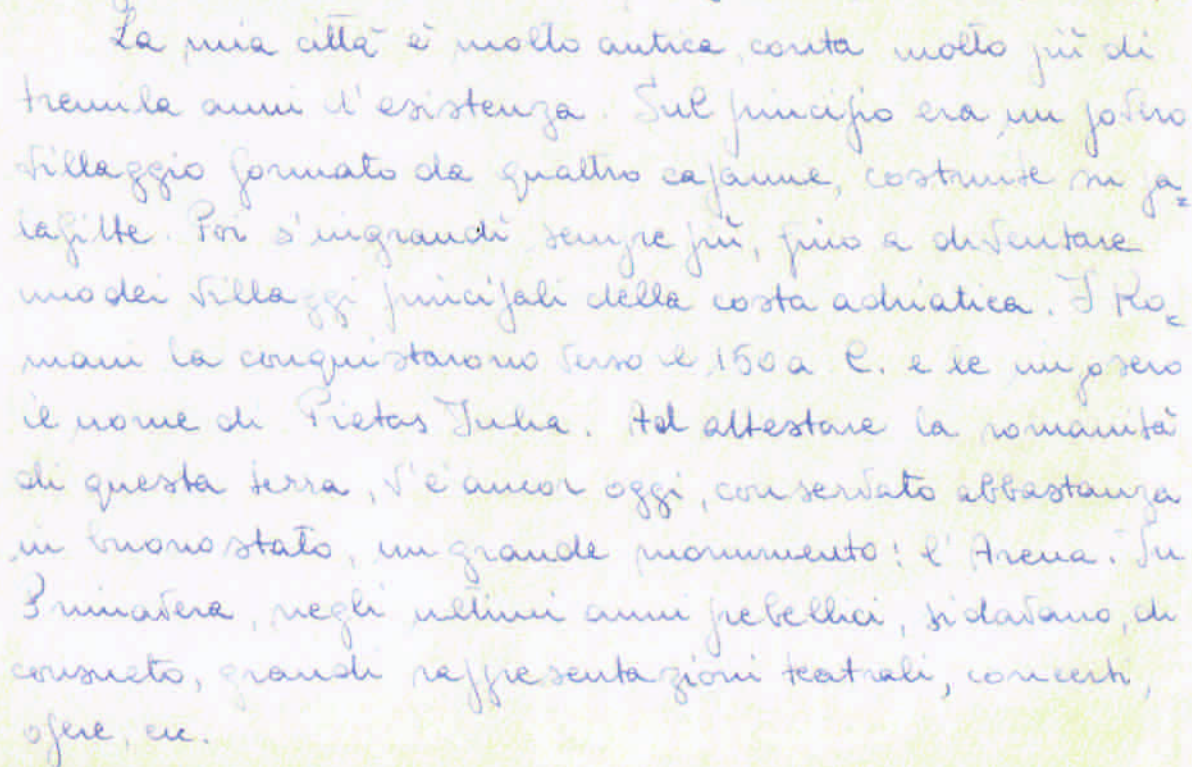 La mia città è molto antica, conta molto più di
tremila anni d'esistenza. Sul principio era un povero
villaggio formato da quattro capanne, costruite su pa=
lafitte. Poi s'ingrandì sempre più, fino a diventare
uno dei villaggi principali della costa adriatica. I Ro=
mani la conquistarono verso il 150 a C. e le imposero
il nome di Pietas Julia. Ad attestare la romanità
di questa terra, v'è ancor oggi, conservato abbastanza
in buono stato, un grande monumento: l'Arena. In
Primavera, negli ultimi anni prebellici, si davano, di
consueto, grandi rappresentazioni teatrali, concerti,
opere, ecc.